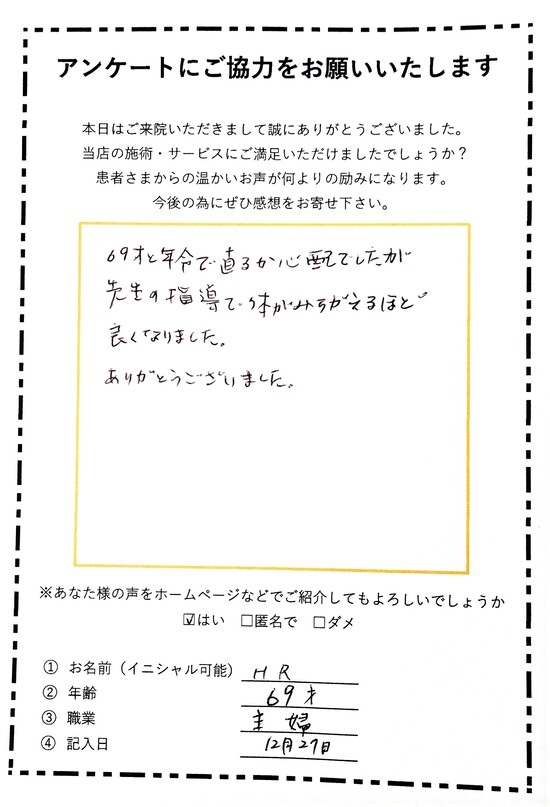 アンケートにご協力をお願いいたします
本日はご来院いただきまして誠にありがとうございました。
当店の施術・サービスにご満足いただけましたでしょうか？
患者さまからの温かいお声が何よりの励みになります。
今後の為にぜひ感想をお寄せ下さい。
69才と年令で直るか心配でしたが
先生の指導で体がみちがえるほど
良くなりました。
ありがとうございました。
※あなた様の声をホームページなどでご紹介してもよろしいでしょうか
☑はい　□匿名で　□ダメ
① お名前（イニシャル可能） H R
② 年齢 69才
③ 職業 主婦
④ 記入日 12月27日